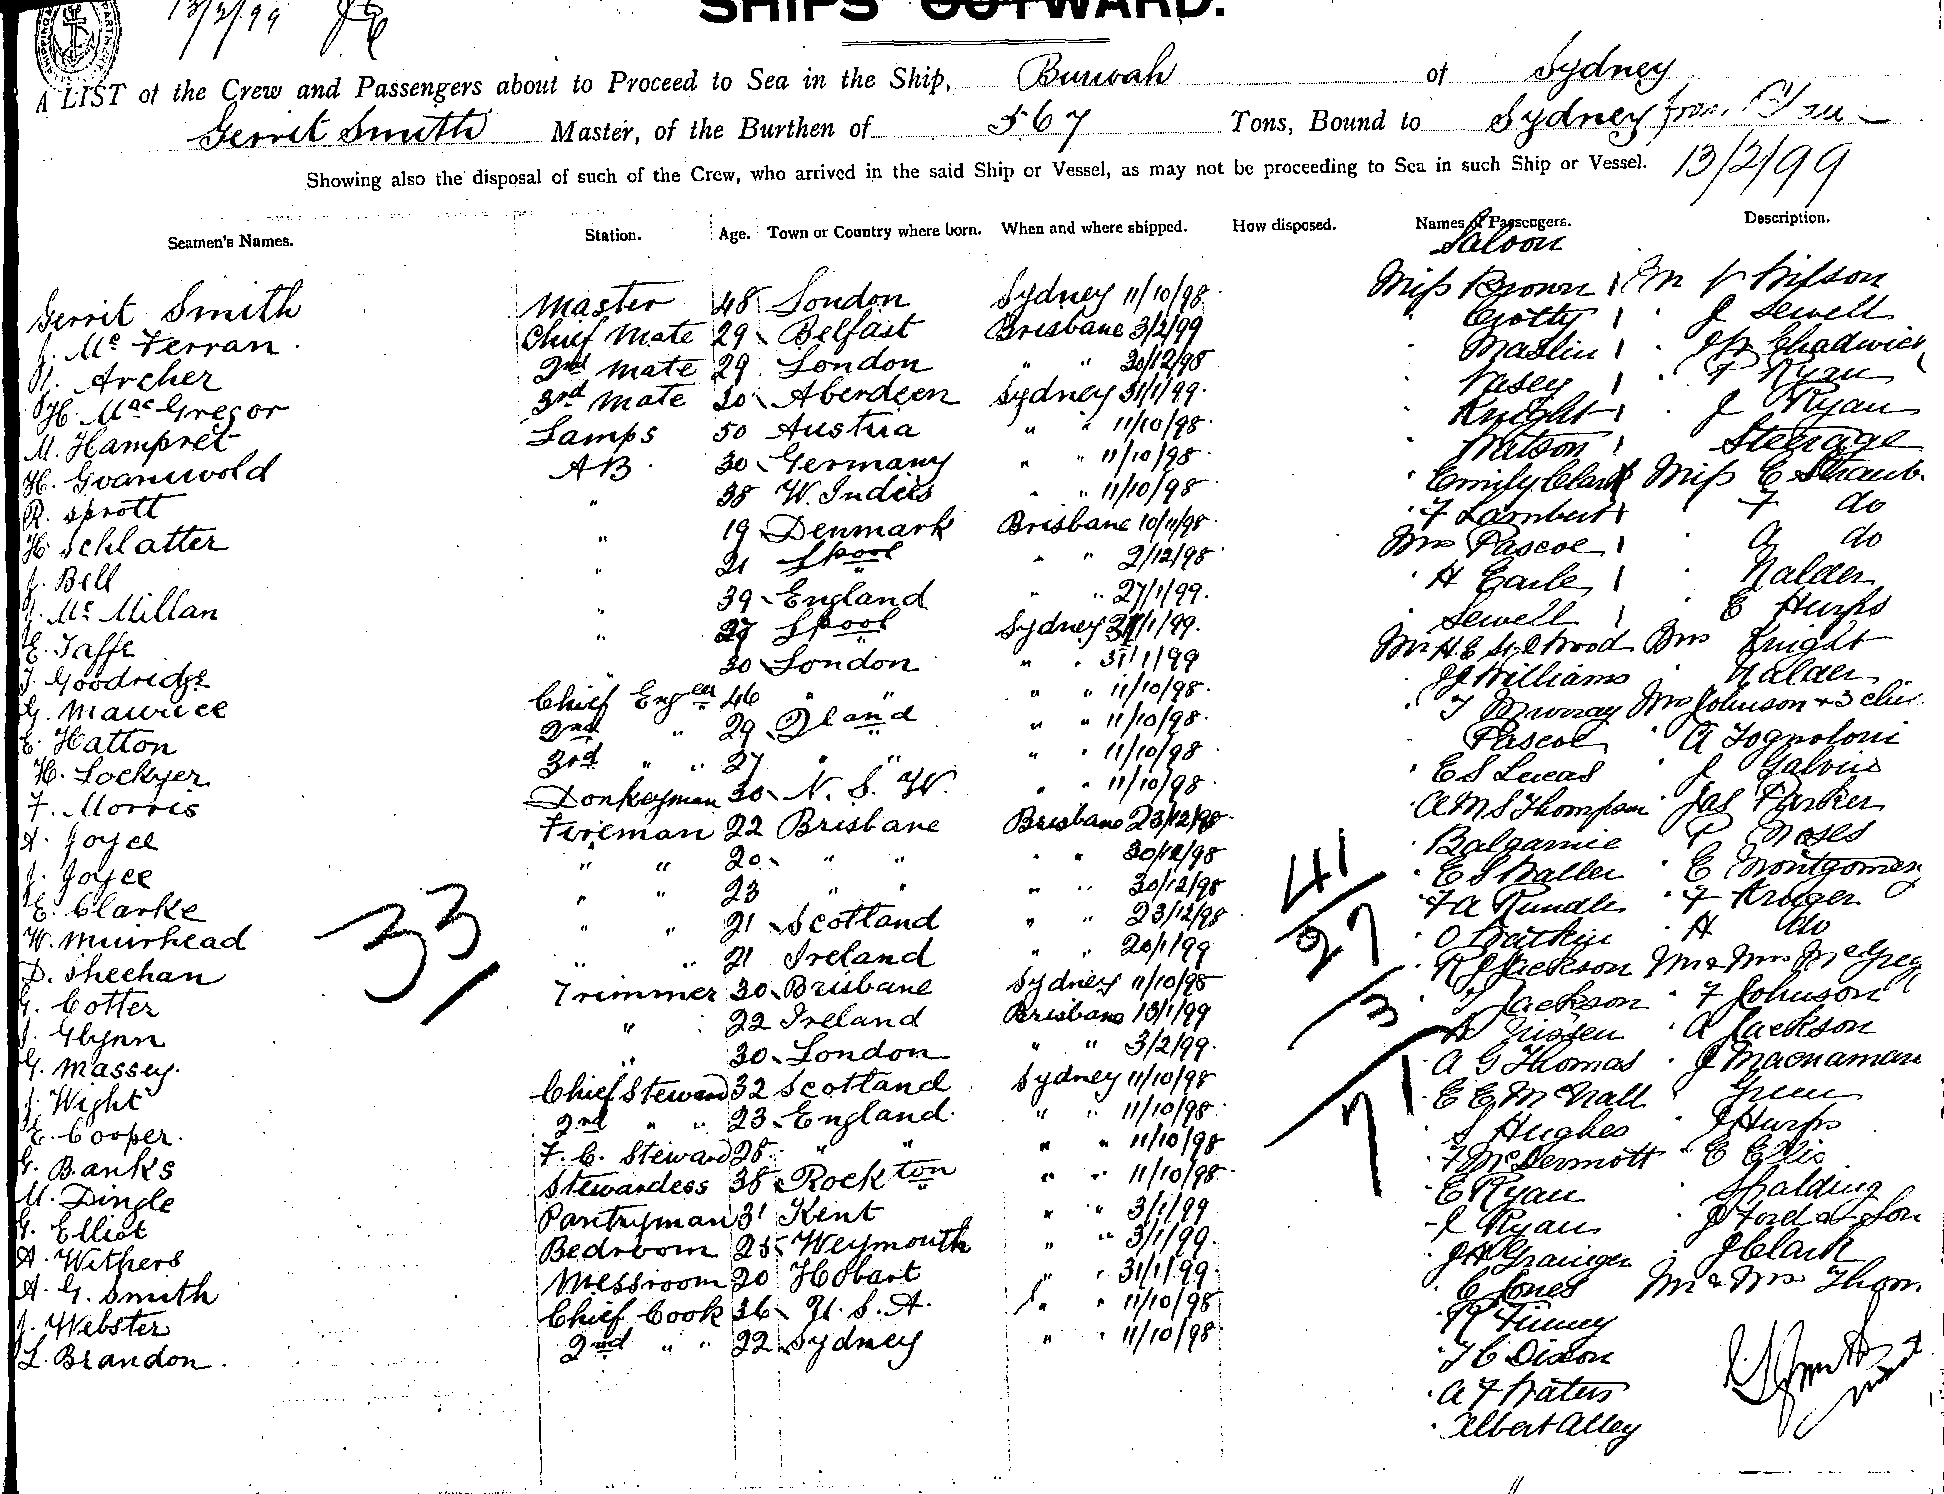 13/2/99
SHIPS OUTWARD.
A LIST of the Crew and Passengers about to Proceed to Sea in the Ship, Burwah of Sydney
Gerrit Smith Master, of the Burthen of 567 Tons, Bound to Sydney from
Showing also the disposal of such of the Crew, who arrived in the said Ship or Vessel, as may not be proceeding to Sea in such Ship or Vessel. 13/2/99
Seamen's Names. Station. Age. Town or Country where born. When and where shipped. How disposed. Names of Passengers. Description.
Gerrit Smith Master 48 London Sydney 11/10/98
J. Mc Ferran Chief Mate 29 Belfast Brisbane 3/2/99
Archer 2nd Mate 29 London " " 30/12/98
H. MacGregor 3rd Mate 30 Aberdeen Sydney 31/1/99
M. Hampret Lamps 50 Austria " " 11/10/98
H. Gvanuvold AB 30 Germany " " 11/10/98
R. Sprott " 38 W. Indies " " 11/10/98
H. Schlatter " 19 Denmark Brisbane 10/11/98
J. Bell " 21 Lpool " " 2/12/98
Mc Millan 39 England " " 27/1/99
E. Taffe " 27 Lpool Sydney 31/1/99
Goodridge 30 London " " 31/1/99
G. Maurice Chief Engeer 46 " " " " 11/10/98
E. Hatton 2nd " 29 Iland " " 11/10/98
H. Lockyer 3rd " " 27 " " " " 11/10/98
F. Morris Donkeyman 30 N. S. W. " " 11/10/98
A. Joyce Fireman 22 Brisbane Brisbane 23/12/98
J. Joyce " " 20 " " " " 30/12/98
E. Clarke " " 23 " " " " 30/12/98
W. Muirhead " " 21 Scotland " " 23/12/98
D. Sheehan " " 21 Ireland " " 20/1/99
G. Cotter Trimmer 30 Brisbane Sydney 11/10/98
J. Glynn " 22 Ireland Brisbane 13/1/99
G. Massey " 30 London " " 3/2/99
J. Wight Chief Steward 32 Scotland Sydney 11/10/98
E. Cooper 2nd " " 23 England " " 11/10/98
G. Banks F. C. Steward 28 " " " " 11/10/98
M. Dingle Stewardess 38 Rockton " " 11/10/98
G. Elliot Pantryman 31 Kent " " 3/1/99
A. Withers Bedroom 25 Weymouth " " 3/1/99
A. G. Smith Messroom 20 Hobart " " 31/1/99
J. Webster Chief Cook 36 U. S. A. " " 11/10/98
L. Brandon 2nd " " 22 Sydney " " 11/10/98
33
41
27
3
71
Saloon
Miss Brown 1
" Crotty 1
" Maslin 1
" Vasey 1
" Knight 1
" Watson 1
" Emily Clark
" F Lambert 1
Mrs Pascoe 1
" H Earle 1
" Sewell 1
Mr H. E. Wood
" J Williams
" T Murray
" Pascoe
" E S Lucas
" A M S Thompson
" Balgarnie
" E S Waller
" F A Rundle
" O Watkin
" R J Jackson
" T Jackson
" Nissen
" A G Thomas
" E E McNall
" S Hughes
" F McDermott
" E Ryan
" J Ryan
" J H Grainger
" C Jones
" R Finney
" T C Dixon
" A F Waters
" Albert Alley
Mr Wilson
" J Sewell
" Chadwick
" F Ryan
" J Ryan
Steerage
Miss E Straub
" F do
" A do
" Nalder
" E Hurps
Mrs Knight
" Nalder
Mrs Johnson + 3 chil
" A Tognoloni
" J Galvin
" Jas Parker
" P Moses
" E Montgomery
" F Kruger
" H do
Mr & Mrs McGreg
" F Johnson
" A Jackson
" J Macnamara
" Green
" J Hurps
" E Ellis
" Spalding
" J Ford & Son
" J Clark
Mr & Mrs Thom